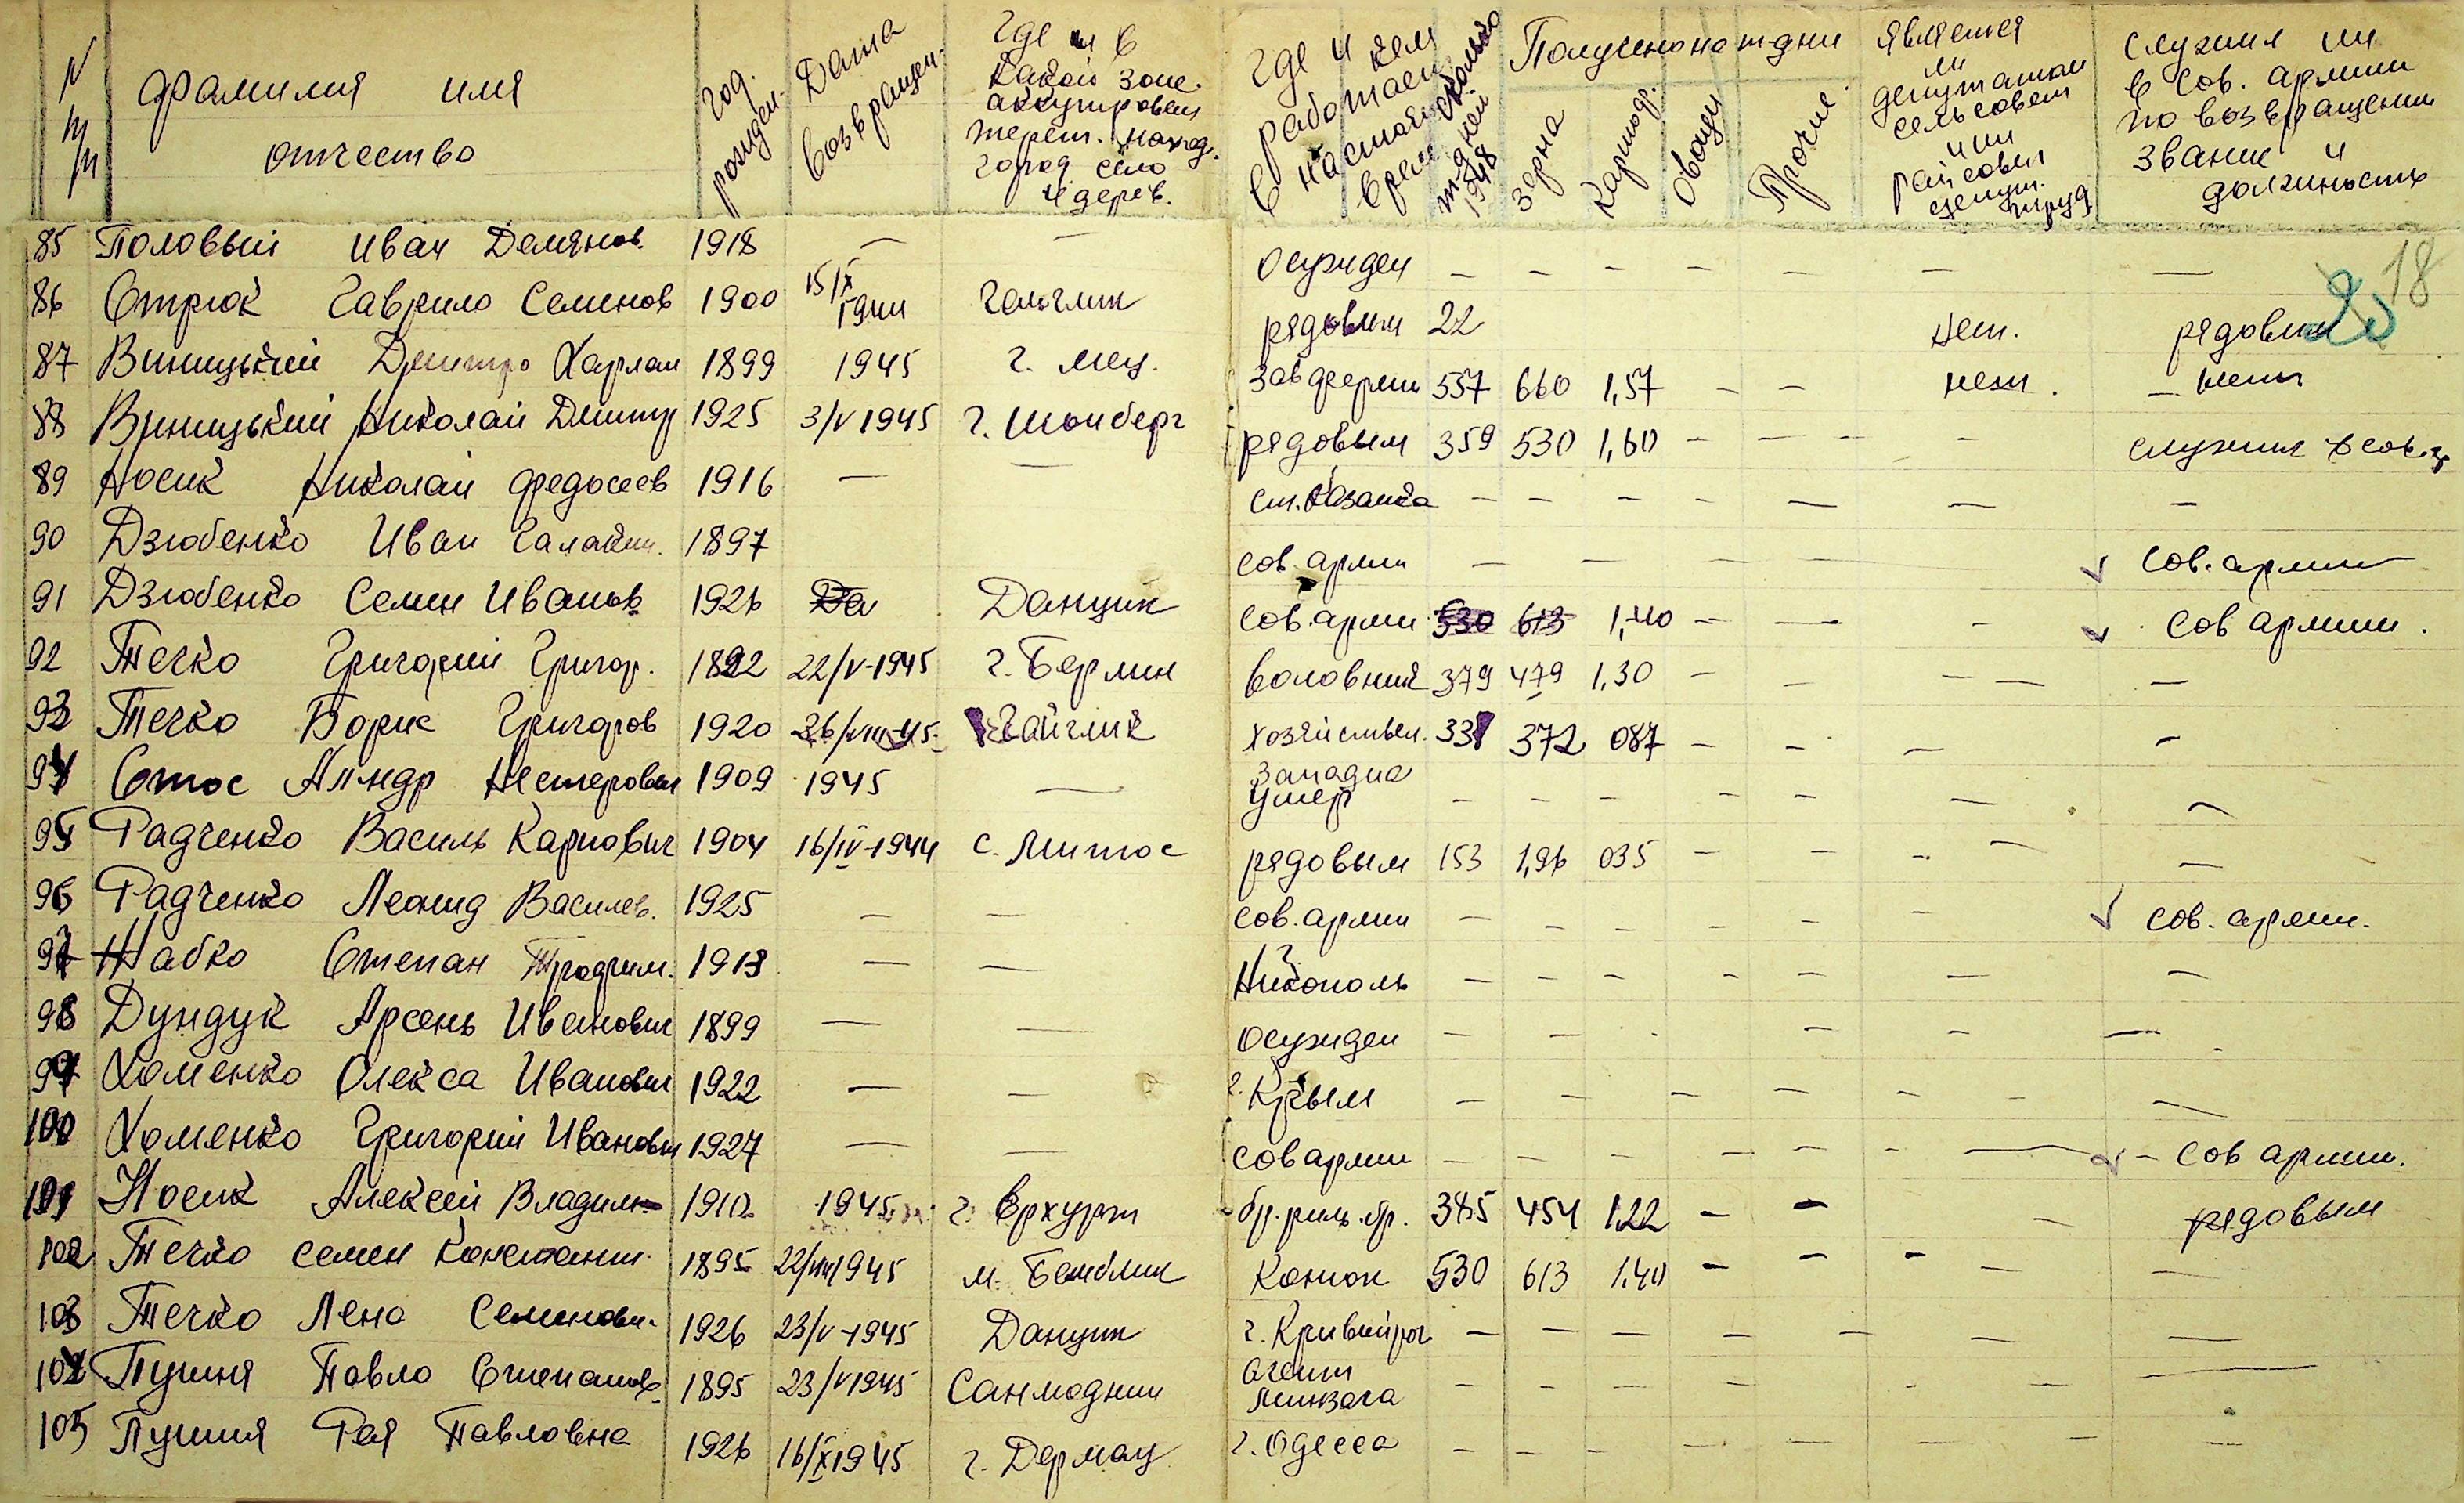 N п/п фамилия имя отчество год рожден. Дата возвращен. Где и в какой зоне аккупирован терет. наход. город село и дерев. Где и кем работает в настоящ. врем сколько т-дней 1948 Получено на т-дни зерна картоф. овощи Прочие является ли депутатом сельсовет или райсовет депут. труд служил ли в Сов. армии по возвращении звание и должность
85 Половый Иван Демянов. 1918 — — осужден — — — — — — —
18
86 Стрюк Гаврило Семенов 1900 15/IX 1944 рядовым 22 нет. рядовым
87 Виницький Дмитро Харлам 1899 1945 г. Мец. зав ферми 557 660 1,57 — — нет. —
88 Виницький Николай Дмитр 1925 3/V 1945 г. Шонберг рядовым 359 530 1,60 — — — — служил в сов.
89 Носик Николай Федосеев 1916 — — ст. Казанка — — — — — — —
90 Дзюбенко Иван 1897 сов. арми — — — — — сов. армии
91 Дзюбенко Семен Иванов 1926 Да Данциг сов. арми 530 613 1,40 — — — сов армии.
92 Течко Григорий Григор. 1892 22/V-1945 г. Берлин воловник 379 479 1,30 — — — — —
93 Течко Борис Григоров 1920 26/VIII-45. хозяйствен. 331 372 087 — — — —
94 Стос Нестерович 1909 1945 — западна умер — — — — — — —
95 Радченко Василь Карпович 1904 16/IV-1944 с. Митос рядовым 153 1,96 035 — — — — —
96 Радченко Леонид Василев. 1925 — — сов. арми — — — — — — сов. арми.
97 Жабко Степан Трофим. 1913 — — г. Никополь — — — — — — —
98 Дундук Арсень Иванович 1899 — — осужден — — — — — —
99 Хоменко Олекса Иванович 1922 — — г. Крым — — — — — — —
100 Хоменко Григорий Иванович 1927 — — сов армии — — — — — — — — сов армии.
101 Носик Алексей Владим 1910 1945 г. Ерхурт бр. рыль. бр. 385 454 1.22 — — — рядовым
102 Течко Семен Констант. 1895 22/VIII1945 м. Бамблин Конюх 530 613 1.40 — — — — —
103 Течко Лена Семенов. 1926 23/V-1945 Данциг г. Кривийрог — — — — — — —
104 Пушня Павло Степанов 1895 23/V1945 агент минзага — — — — — — —
105 Пушня Рая Павловна 1926 16/X1945 г. Одесса — — — — — — —